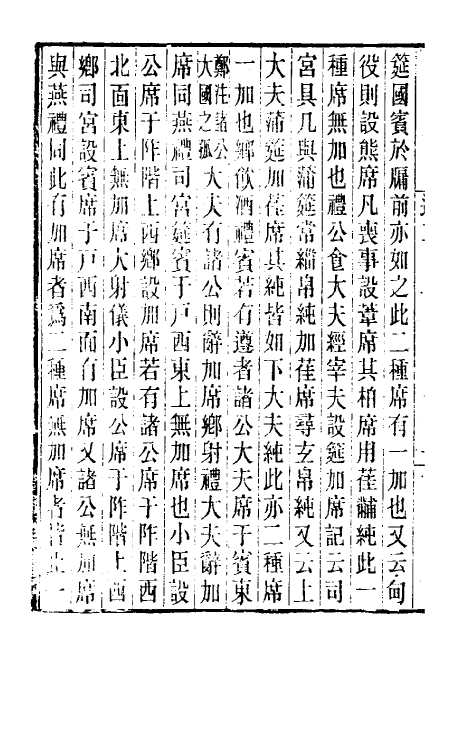 筵國賓於牖前亦如之此二種席有一加也又云甸
役則設熊席凡喪事設葦席其柏席用萑黼純此一
種席無加也禮公食大夫經宰夫設筵加席記云司
宮具几與蒲筵常緇帛純加萑席尋玄帛純又云上
大夫蒲筵加萑席其純皆如下大夫純此亦二種席
一加也鄉飲酒禮賓若有遵者諸公大夫席于賓東
鄭注諸公大國之孤大夫有諸公則辭加席鄉射禮大夫辭加
席同燕禮司宮筵賓于戸西東上無加席也小臣設
公席于阼階上西鄉設加席若有諸公席于阼階西
北面東上無加席大射儀小臣設公席于阼階上西
鄉司宮設賓席于戸西南面有加席又諸公無加席
與燕禮同此有加席者爲二種席無加席者皆止一